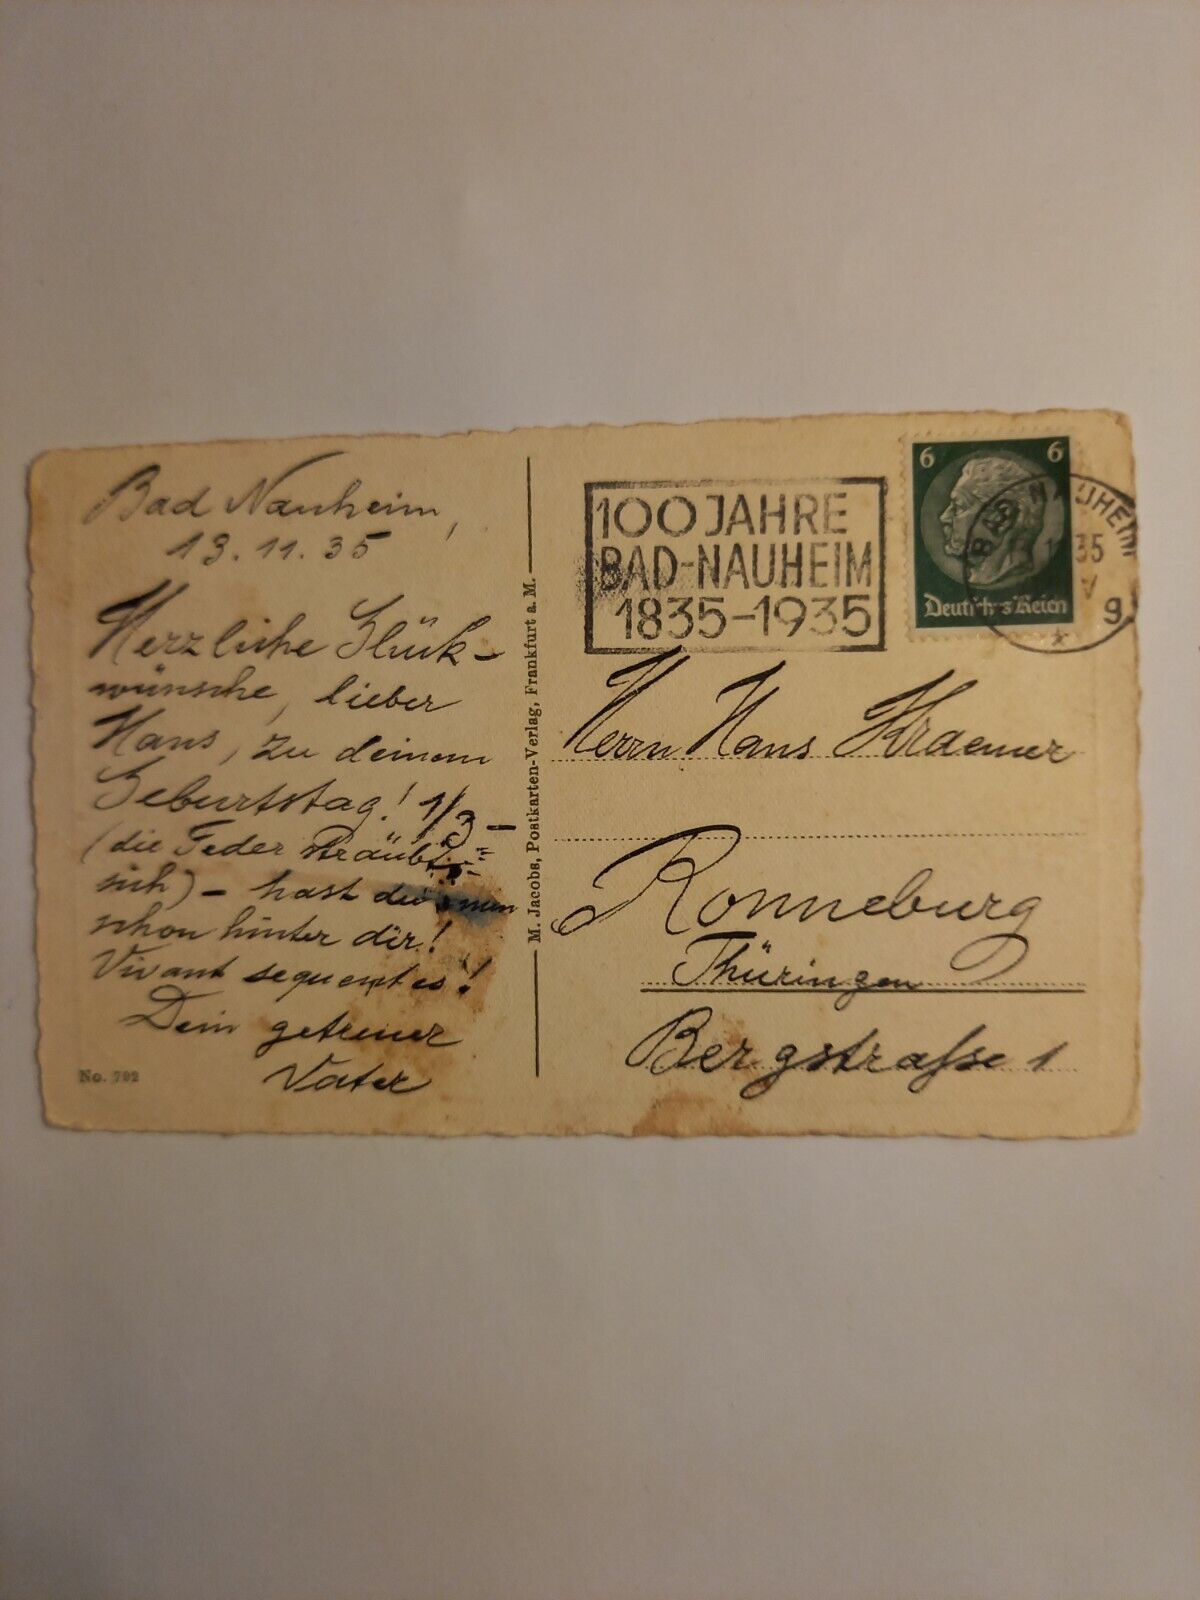 Bad Nauheim,
13.11.35
Herzliche Glück-
wünsche, lieber
Hans, zu deinem
Geburtstag! 1/3 -
(die Feder sträubt
sich) - hast du nun
schon hinter dir!
Vivant sequentes!
Dein getreuer
Vater
No. 792
M. Jacobs, Postkarten-Verlag, Frankfurt a. M.
100 JAHRE
BAD-NAUHEIM
1835-1935
6 6
Deutsches Reich
BAD NAUHEIM
35
g
Herrn Hans Kraemer
Ronneburg
Thüringen
Bergstraße 1